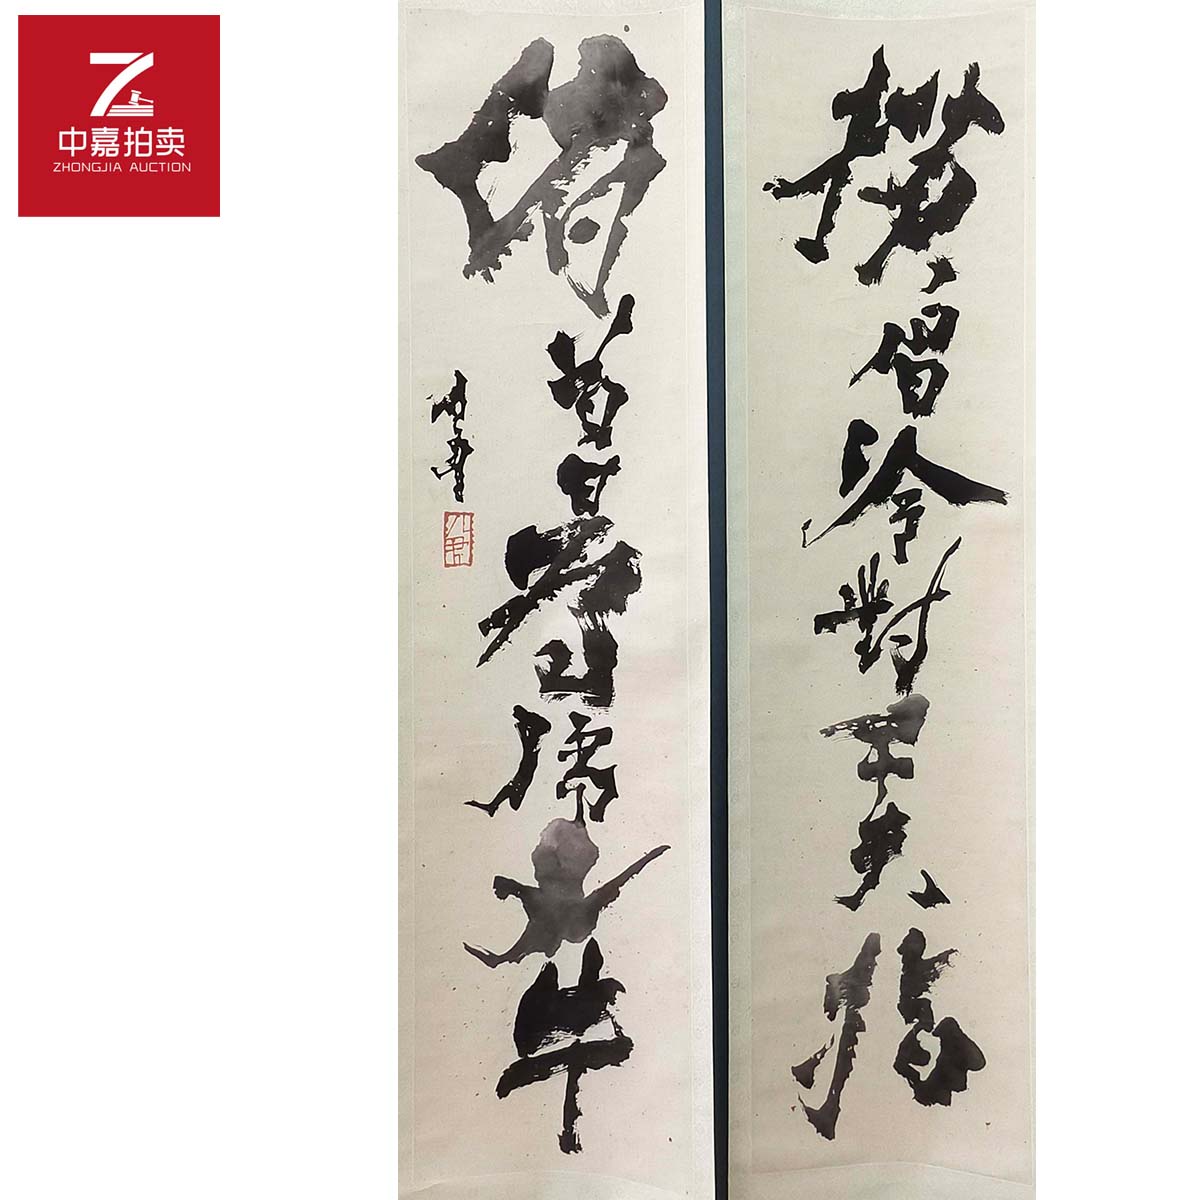 中嘉拍卖
ZHONGJIA AUCTION
横眉冷對千夫指
俯首甘為孺子牛